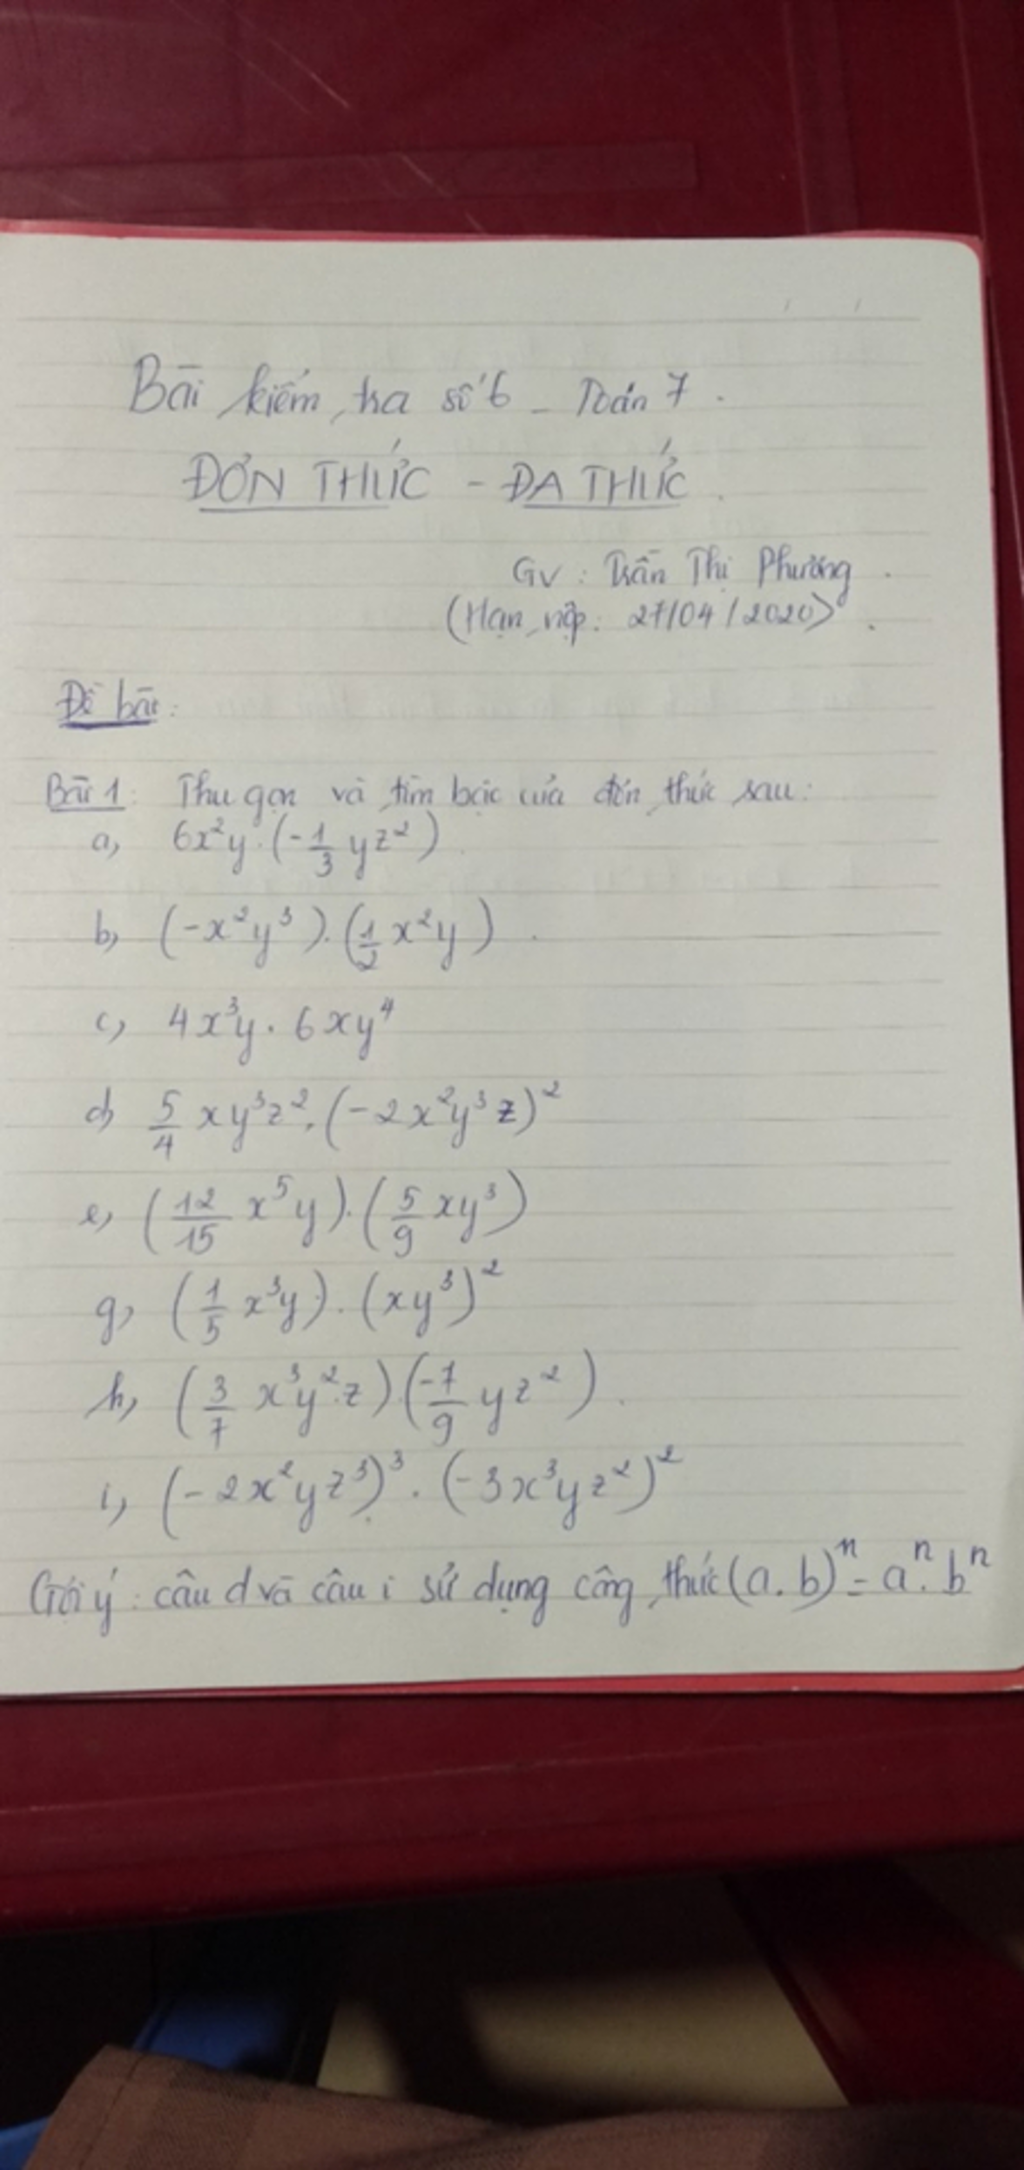 Bài kiểm tra số 6 - Toán 7.
ĐƠN THỨC - ĐA THỨC.
GV: Trần Thị Phường.
(Hạn nộp: 27/04/2020).
Đề bài:
Bài 1: Thu gọn và tìm bậc của đơn thức sau:
a, 6x²y.(-1/3 yz²)
b, (-x²y³).(1/2 x²y).
c, 4x³y . 6xy⁴
d, 5/4 xy³z².(-2x²y³z)²
e, (12/15 x⁵y).(5/9 xy³)
g, (1/5 x³y).(xy³)²
h, (3/7 x³y²z)(-7/9 yz²).
i, (-2x²yz³)³.(-3x³yz²)²
Gợi ý: câu d và câu i sử dụng công thức (a.b)ⁿ = aⁿ.bⁿ